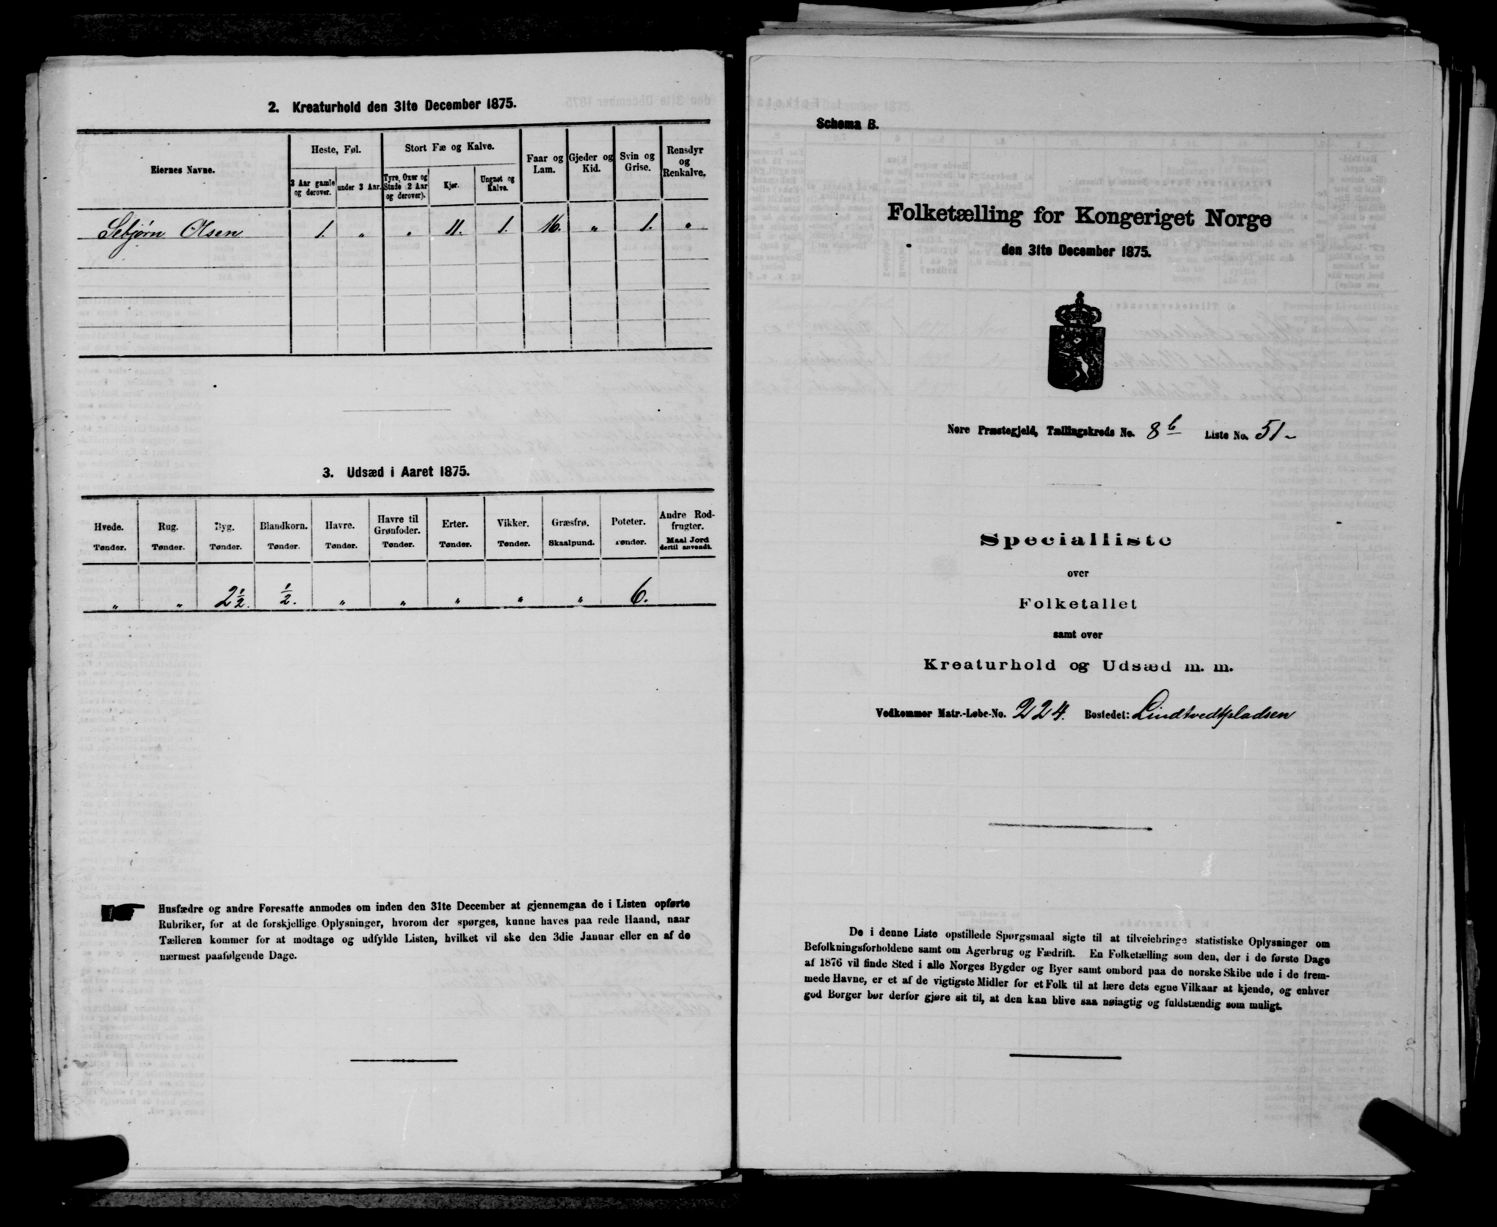 2. Kreaturhold den 31te December 1875.
Eiernes Navne.
Heste, Føl.
3 Aar gamle og derover.
under 3 Aar.
Stort Fæ og Kalve.
Tyre, Oxer og Stude (2 Aar og derover).
Kjør.
Ungnøt og Kalve.
Faar og Lam.
Gjeder og Kid.
Svin og Grise.
Rensdyr og Renkalve.
Sebjørn Olsen 1. " " 11. 1. 16. " 1. "
3. Udsæd i Aaret 1875.
Hvede. Tønder.
Rug. Tønder.
Byg. Tønder.
Blandkorn. Tønder.
Havre. Tønder.
Havre til Grønfoder. Tønder.
Erter. Tønder.
Vikker. Tønder.
Græsfrø. Skaalpund.
Poteter. Tønder.
Andre Rodfrugter. Maal Jord dertil anvendt.
" " 2 1/2. 1/2. " " " " " 6.
Husfædre og andre Foresatte anmodes om inden den 31te December at gjennemgaa de i Listen opførte
Rubriker, for at de forskjellige Oplysninger, hvorom der spørges, kunne haves paa rede Haand, naar
Tælleren kommer for at modtage og udfylde Listen, hvilket vil ske den 3die Januar eller en af de
nærmest paafølgende Dage.
Schema B.
Folketælling for Kongeriget Norge
den 31te December 1875.
Nore Præstegjeld, Tællingskreds No. 8 b Liste No. 51-
Specialliste
over
Folketallet
samt over
Kreaturhold og Udsæd m. m.
Vedkommer Matr.-Løbe-No. 224. Bostedet: Lindtvedtpladsen
De i denne Liste opstillede Spørgsmaal sigte til at tilveiebringe statistiske Oplysninger om
Befolkningsforholdene samt om Agerbrug og Fædrift. En Folketælling som den, der i de første Dage
af 1876 vil finde Sted i alle Norges Bygder og Byer samt ombord paa de norske Skibe ude i de frem-
mede Havne, er et af de vigtigste Midler for et Folk til at lære dets egne Vilkaar at kjende, og enhver
god Borger bør derfor gjøre sit til, at den kan blive saa nøiagtig og fuldstændig som muligt.